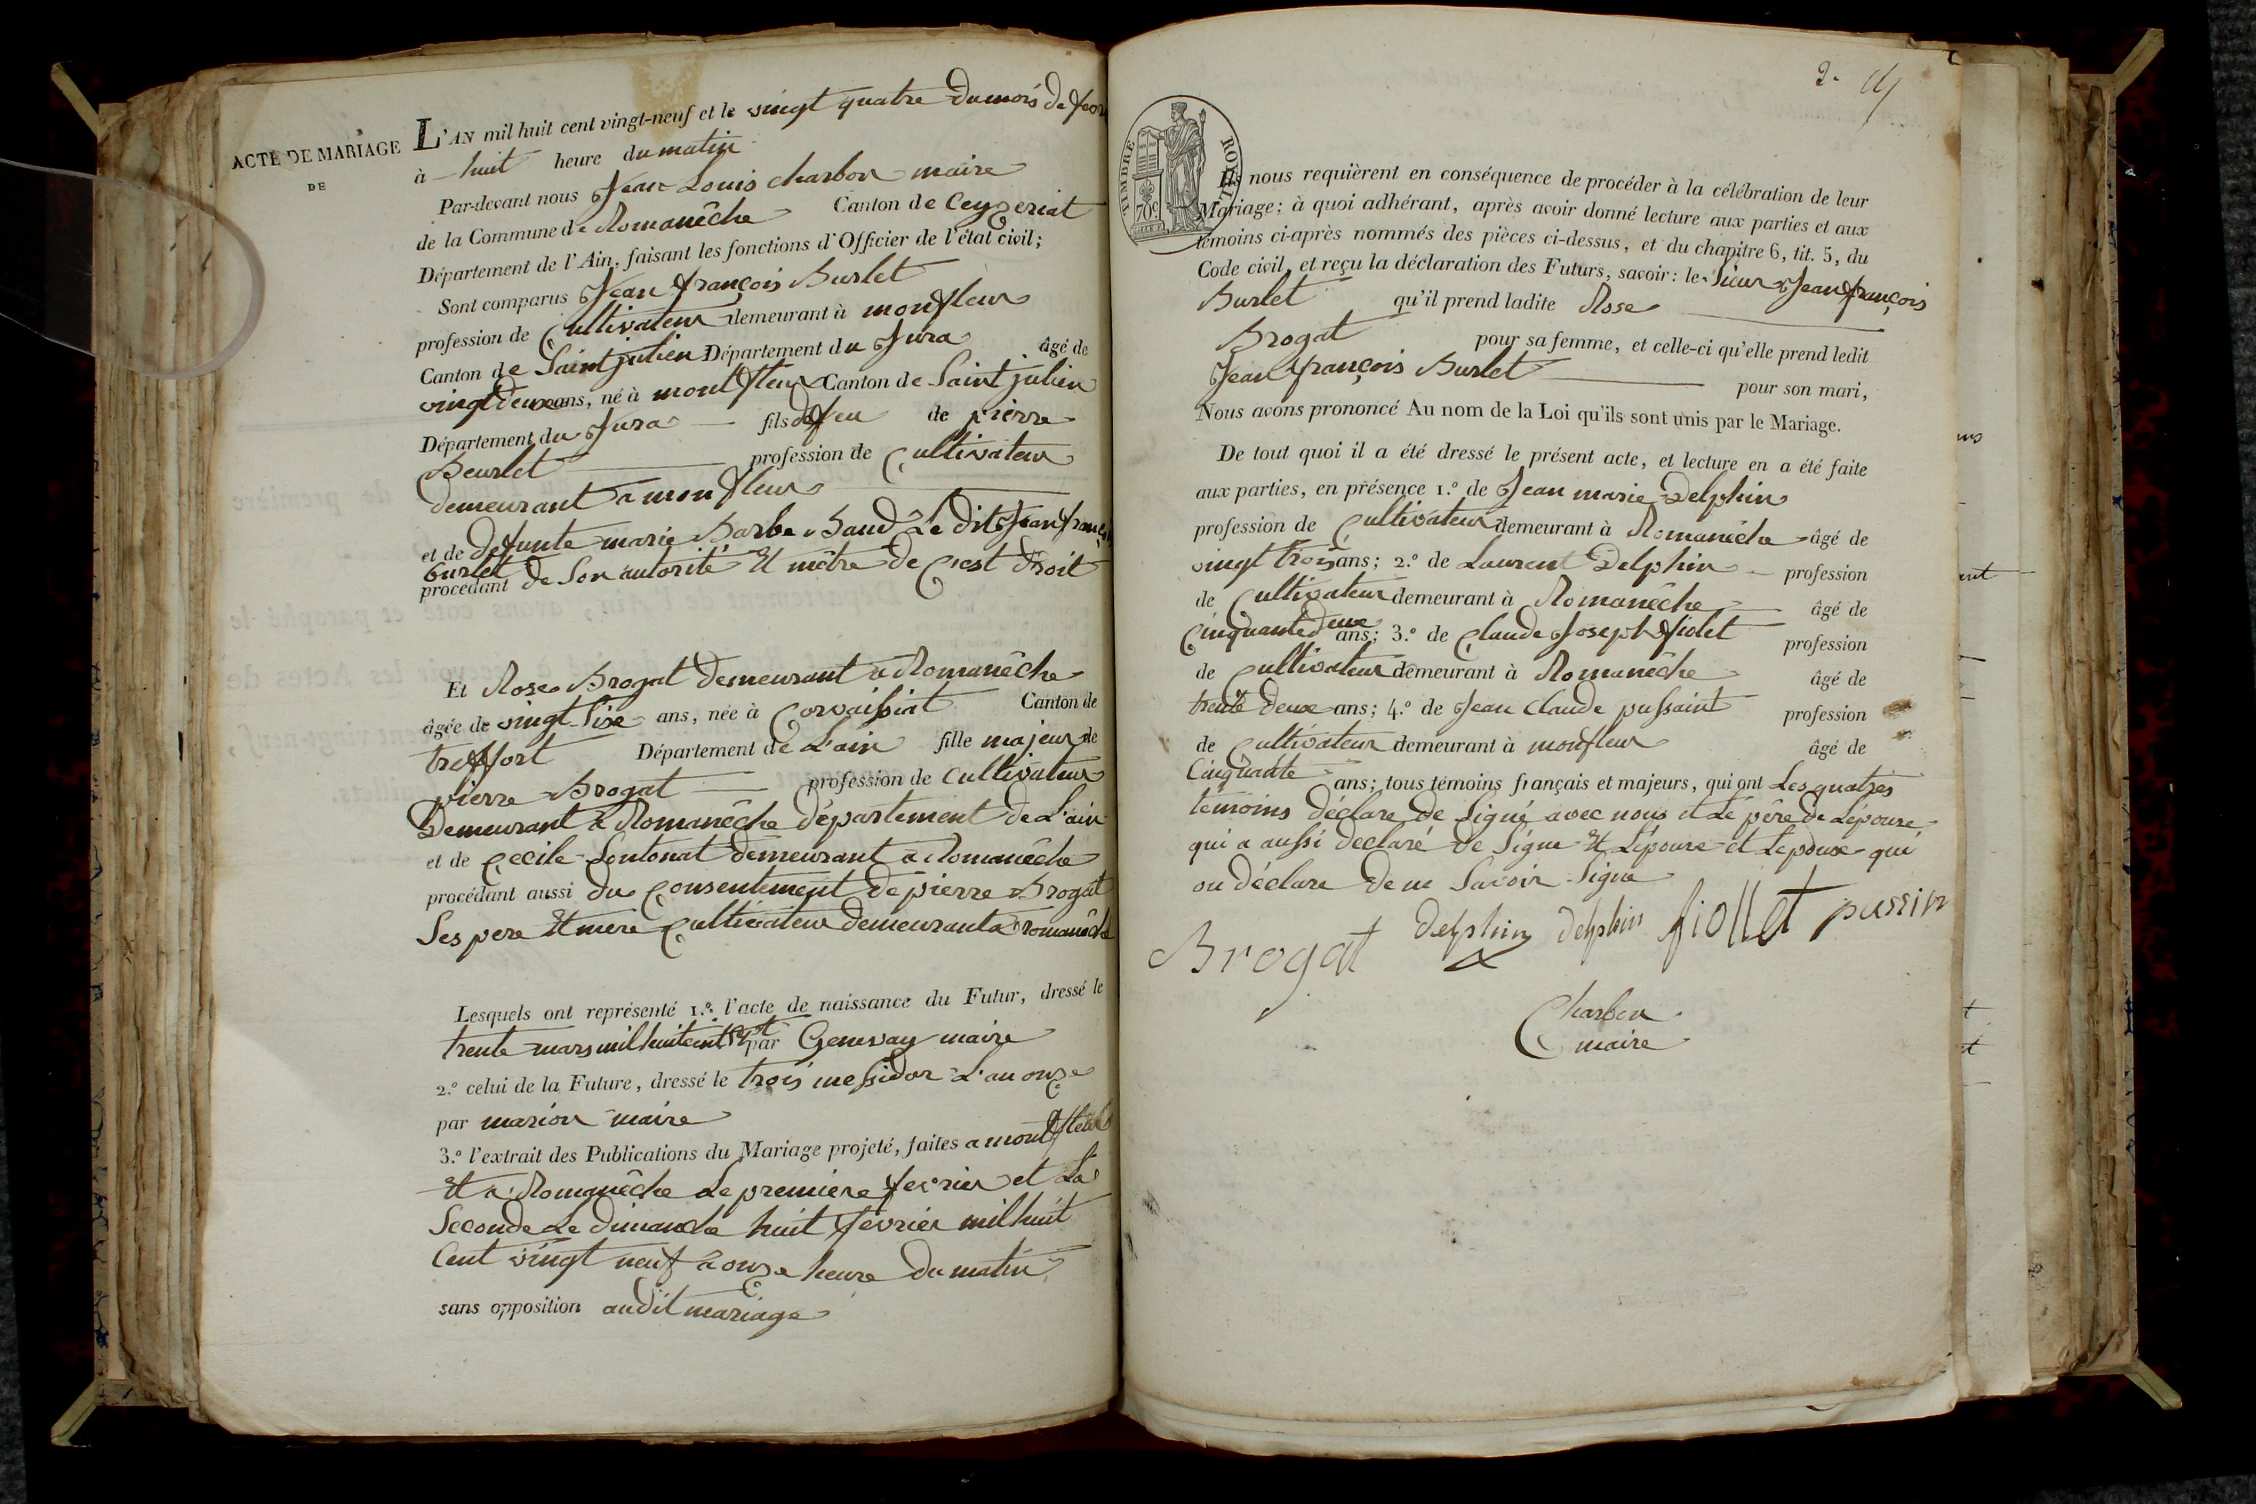 ACTE DE MARIAGE
DE
L'AN mil huit cent vingt-neuf et le vingt quatre du mois de
à huit heure du matin
Par-devant nous Jean Louis charbon maire
de la Commune de Romanêche Canton de Ceyzeriat
Département de l'Ain, faisant les fonctions d'Officier de l'état civil;
Sont comparus Jean françois Burlet
profession de Cultivateur demeurant à monfleur
Canton de Saint julien Département du Jura âgé de
vingt deux ans, né à montfleur Canton de Saint julien
Département du Jura fils de feu de pierre
Beurlet profession de Cultivateur
demeurant a monfleur
et de defunte marie Barbe Baud Le dit Jean françois
burlet
procédant de Son autorité Et mêtre de Cest Droit
Et Rose Brogat demeurant a Romanêche
âgée de vingt Six ans, née à Corvaissiat Canton de
treffort Département de L'ain fille majeur de
pierre Brogat profession de Cultivateur
Demeurant a Romanêche département de L'ain
et de Cecile Sontonat demeurant a Romanêche
procédant aussi du Consentement de pierre Brogat
Ses pere Et mere Cultivateur demeurant a romanêche
Lesquels ont représenté 1.º l'acte de naissance du Futur, dressé le
trente mars mil huit cent sept par Genevay maire
2.º celui de la Future, dressé le trois messidor L'an onze
par marion maire
3.º l'extrait des Publications du Mariage projeté, faites a montfleur
Et a Romanêche Le premiere fevrier et La
Seconde Le dimanche huit fevrier mil huit
Cent vingt neuf a onze heure du matin
sans opposition audit mariage
2.
TIMBRE ROYAL
70c
Ils nous requièrent en conséquence de procéder à la célébration de leur
Mariage; à quoi adhérant, après avoir donné lecture aux parties et aux
témoins ci-après nommés des pièces ci-dessus, et du chapitre 6, tit. 5, du
Code civil, et reçu la déclaration des Futurs, savoir: le Sieur Jean françois
Burlet qu'il prend ladite Rose
Brogat pour sa femme, et celle-ci qu'elle prend ledit
Jean françois Burlet pour son mari,
Nous avons prononcé Au nom de la Loi qu'ils sont unis par le Mariage.
De tout quoi il a été dressé le présent acte, et lecture en a été faite
aux parties, en présence 1.º de Jean marie Delphin
profession de Cultivateur demeurant à Romanêche âgé de
vingt trois ans; 2.º de Laurent Delphin profession
de Cultivateur demeurant à Romanêche âgé de
Cinquante deux ans; 3.º de Claude Joseph fiolet profession
de Cultivateur demeurant à Romanêche âgé de
trente deux ans; 4.º de Jean Claude pussaint profession
de Cultivateur demeurant à monfleur âgé de
Cinquante ans; tous témoins français et majeurs, qui ont Les quatres
temoins déclare de Signé avec nous et Le père de L'épouse
qui a aussi declaré de Signe Et L'épouse et Lepoux qui
on déclare de ne Savoir Signe
Brogat delphin delphin fiollet
Charbon
maire